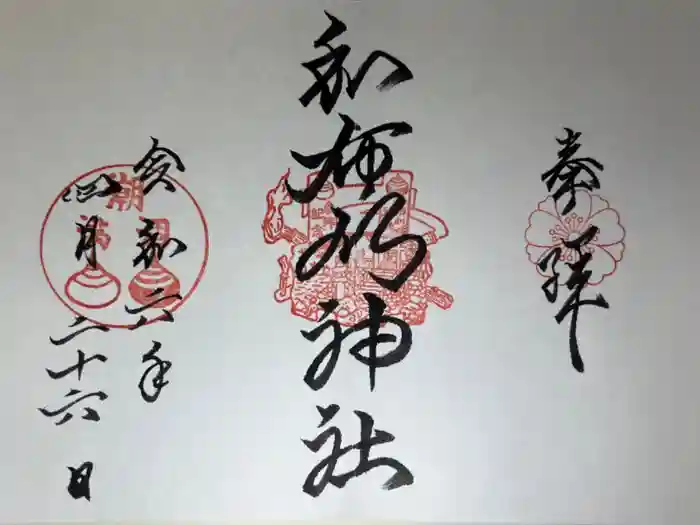 奉拝
和布刈神社
令和六年
四月二十六日
潮